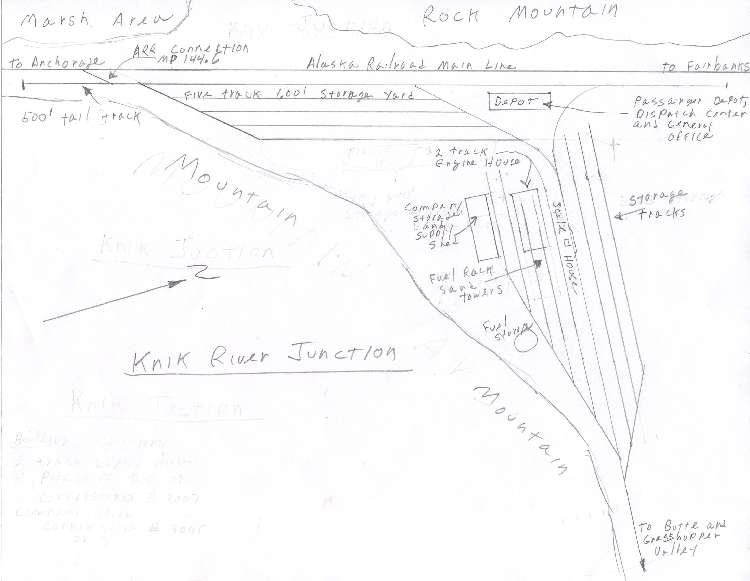 Marsh Area
Rock Mountain
ARR Connection
MP 144.6
to Anchorage
Alaska Railroad Main Line
to Fairbanks
Five track 1,601' Storage Yard
600' tail track
Depot
Passanger Depot,
Dispatch Center
and General
office
2 track
Engine House
Mountain
Company
Storage
and
Supply
Shed
Storage
tracks
Scale House
Fuel Rack
Sand
towers
Knik Juction
Fuel
Storage
Knik River Junction
Mountain
to Butte and
Grasshopper
Valley